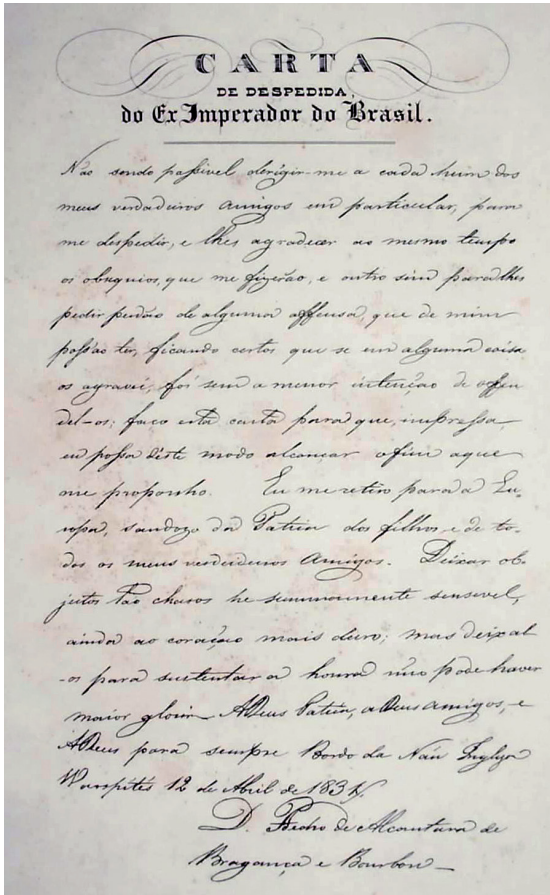 CARTA
DE DESPEDIDA,
do Ex Imperador do Brasil.
Não sendo possivel derigir-me a cada hum dos
meus verdadeiros amigos em particular, para
me despedir, e lhes agradecer ao mesmo tempo
os obsequios, que me fizerão, e outro sim para lhes
pedir perdão de alguma offensa, que de mim
possão ter, ficando certos que se em alguma coisa
os agravei, foi sem a menor intenção de offen
del-os; faço esta carta para que, impressa,
eu possa déste modo alcançar o fim a que
me proponho. Eu me retiro para a Eu-
ropa, saudozo da Patria dos filhos, e de to-
dos os meus verdadeiros Amigos. Deixar ob-
jectos tão charos he summamente sensivel,
ainda ao coração mais duro; mas deixal
-os para sustentar a honra não pode haver
maior gloria. ADeus Patria, aDeus Amigos, e
ADeus para sempre Bordo da Náu Ingleza
Warspites 12 de Abril de 1831.
D. Pedro de Alcantara de
Bragança e Bourbon